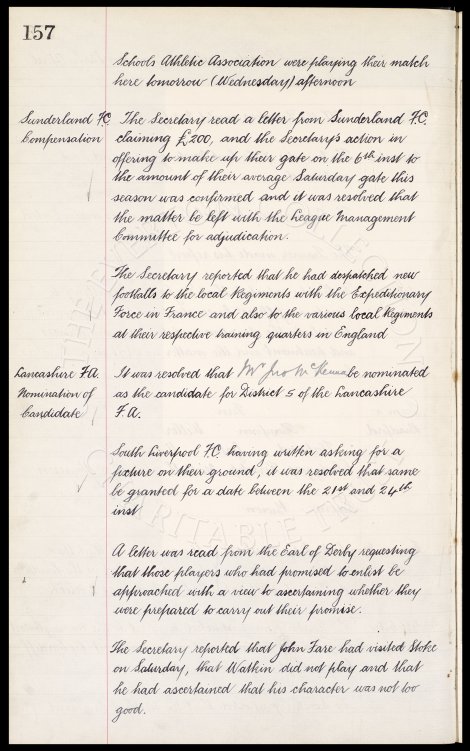 157
Schools Athletic Association were playing their match
here tomorrow (Wednesday) afternoon
Sunderland F.C.
Compensation
The Secretary read a letter from Sunderland F.C.
claiming £200, and the Secretary's action in
offering to make up their gate on the 6th inst to
the amount of their average Saturday gate this
season was confirmed and it was resolved that
the matter be left with the League Management
Committee for adjudication.
The Secretary reported that he had despatched new
footballs to the local Regiments with the Expeditionary
Force in France and also to the various local Regiments
at their respective training quarters in England
Lancashire F.A.
Nomination of
Candidate
It was resolved that Mr Jno McKenna be nominated
as the candidate for District 5 of the Lancashire
F.A.
South Liverpool F.C. having written asking for a
fixture on their ground, it was resolved that same
be granted for a date between the 21st and 24th
inst
A letter was read from the Earl of Derby requesting
that those players who had promised to enlist be
approached with a view to ascertaining whether they
were prepared to carry out their promise.
The Secretary reported that John Fare had visited Stoke
on Saturday, that Watkin did not play and that
he had ascertained that his character was not too
good.